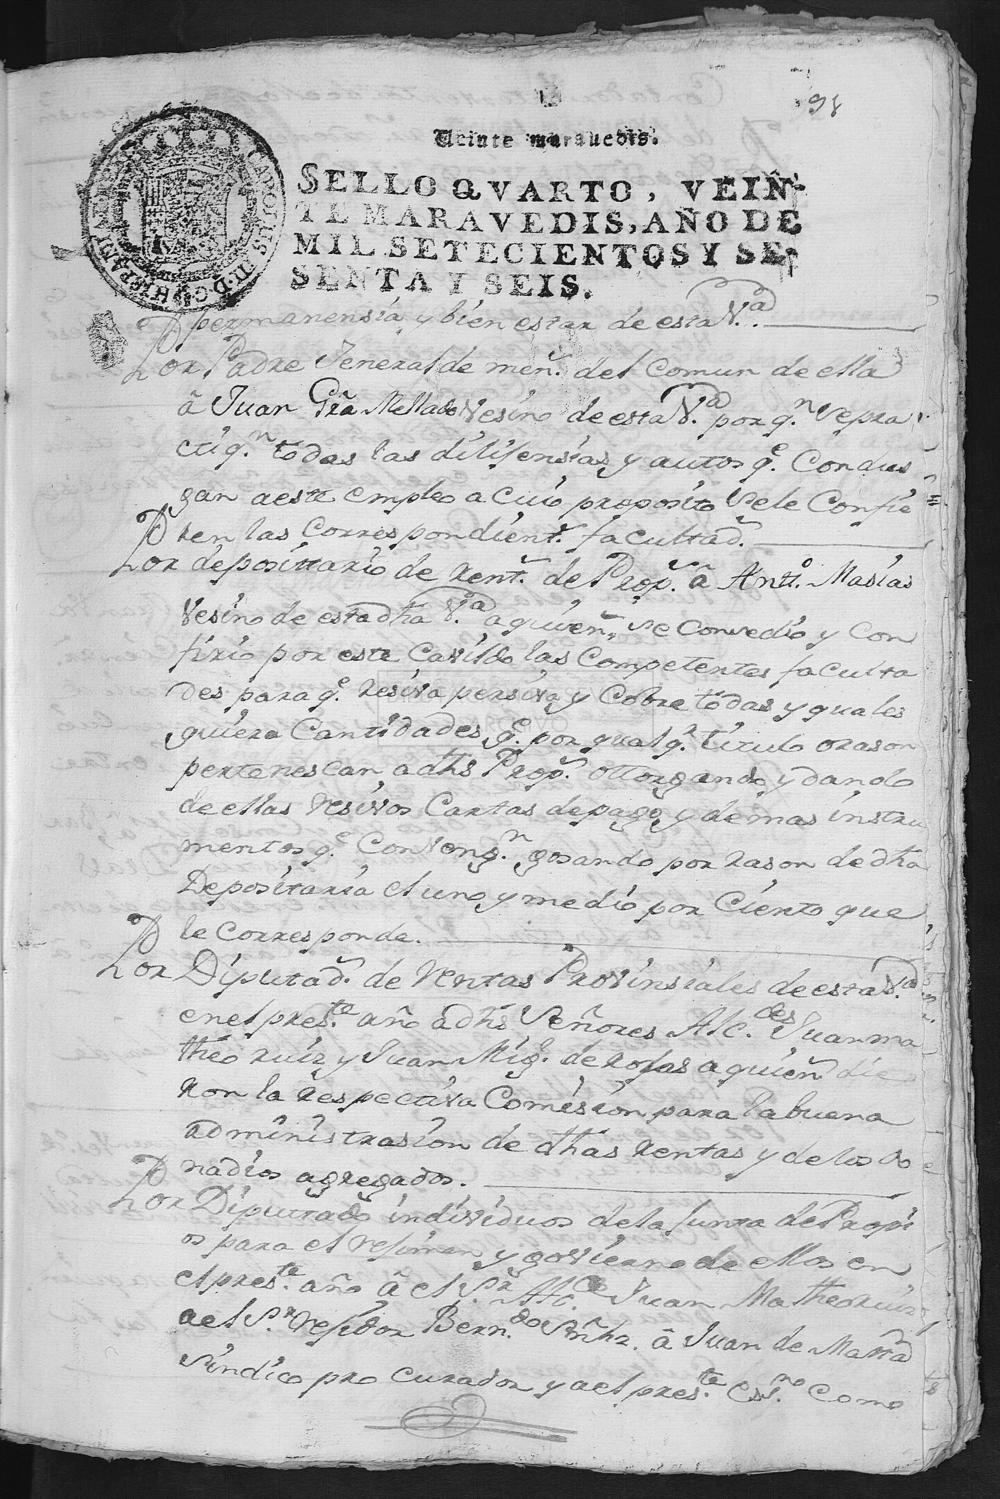 98
Veinte maravedis.
SELLO QVARTO, VEIN-
TE MARAVEDIS, AÑO DE
MIL SETECIENTOS Y SE-
SENTA Y SEIS.
CAROLUS III D G HISPANIAR
permanensia y bien estar de esta V.ª
Por Padre Jeneral de men.s del Comun de ella
â Juan Grã Mellado Vesino de esta V.ª por q.n se pra
ctiq.n todas las dilijensias, y autos q.e Condus
gan a este empleo a cuio proposito se le Confie
ren las Correspondient.s facultad.s
Por deposittario de Rent.s de Prop.s â Antt.o Masias
Vesino de esta dha V.ª a quien, se Consedio y Con
firio por este Cavildo las Competentes faculta
des para q.e Resiva persiva, y Cobre todas y quales
quiera Cantidades q.e por qualq.r titulo o rason
pertenescan a dhs Prop.s ottorgando, y dando
de ellas Resivos Cartas de pago, y demas instru
mentos q.e Conveng.n gosando por rason de dha
Depositaria el uno y medio por Ciento que
le Corresponde.
Por Diputad.s de Rentas Provinsiales de esta V.ª
en el pres.te año a dhs Señores Alc.des Juan ma
theo ruiz y Juan Mig.l de Rojas a quien die
ron la Respectiva Comision para la buena
administrasion de dhas Rentas y de los Ra
nadios agregados.
Por Diputado individuos de la Junta de Propi
os para el Resimen y govierno de ellos en
el pres.te año â el S.r Alc.e Juan Matheo ruiz
a el S.r Residor Bern.do Snhz. â Juan de Marta
Sindico pro curador y a el pres.te Es.no Como